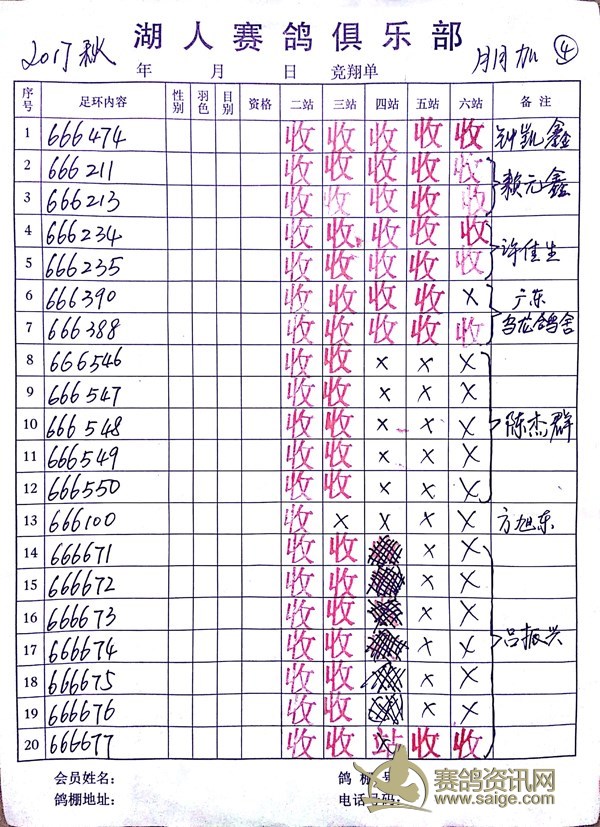 湖人赛鸽俱乐部
2017秋 年 月 日 竞翔单 月月加 ④
序号 足环内容 性别 羽色 目别 资格 二站 三站 四站 五站 六站 备注
1 666474 收 收 收 收 收 钟凯鑫
2 666211 收 收 收 收 收
3 666213 收 收 收 收 收 赖元鑫
4 666234 收 收 收 收 收
5 666235 收 收 收 收 收 许佳生
6 666390 收 收 收 收 × 广东
7 666388 收 收 收 收 收 乌龙鸽舍
8 666546 收 收 × × ×
9 666547 收 收 × × ×
10 666548 收 收 × × × 陈杰群
11 666549 收 收 × × ×
12 666550 收 收 × × ×
13 666100 收 × × × × 方旭东
14 666671 收 收 × ×
15 666672 收 收 × ×
16 666673 收 收 × ×
17 666674 收 收 × × 吕振兴
18 666675 收 收 × ×
19 666676 收 收 × ×
20 666677 收 收 站 收 收
会员姓名： 鸽棚号
鸽棚地址： 电话号码：
赛鸽资讯网
www.saige.com